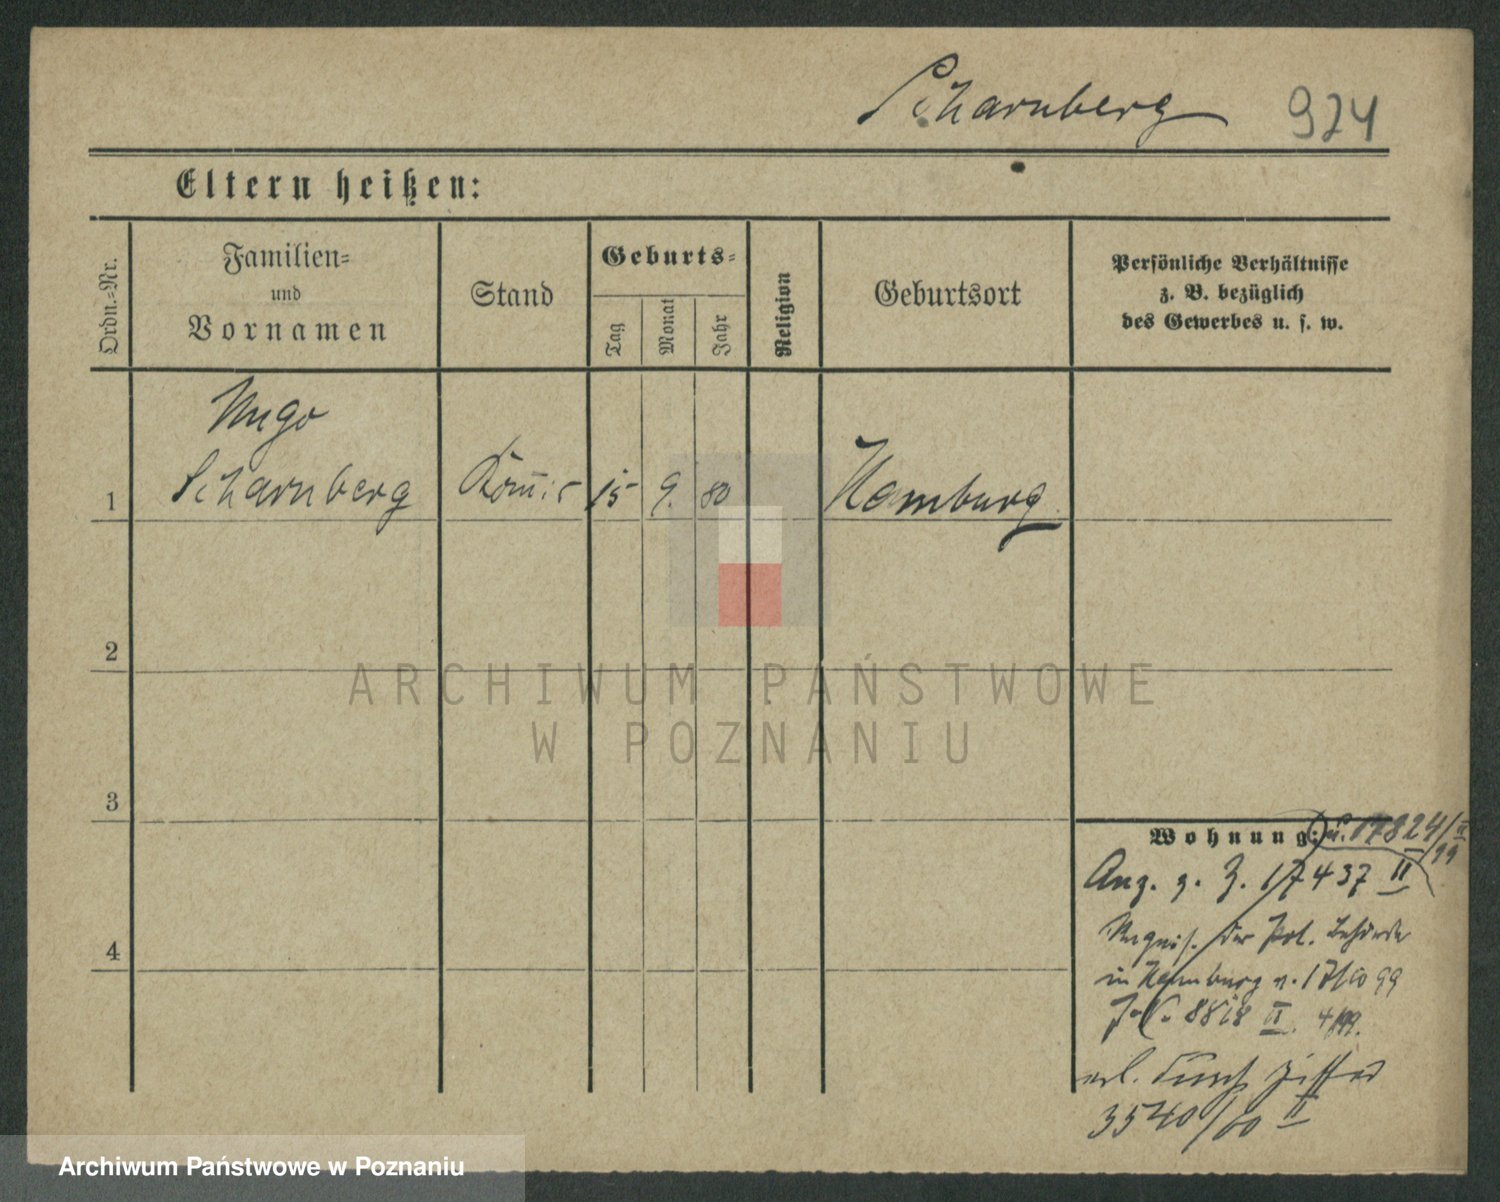 Scharnberg 924
Eltern heißen:
Ordn.-Nr.
Familien-
und
Vornamen
Stand
Geburts-
Tag
Monat
Jahr
Religion
Geburtsort
Persönliche Verhältnisse
z. B. bezüglich
des Gewerbes u. s. w.
Hugo
1 Scharnberg 15 9. 80 Hamburg.
2
3
4
Wohnung: u. 17824/II
99
Anz. z. Z. 17437 II
der Pol. Behörde
in Hamburg v. 17/10 99
8818 II. 4/99.
erl. durch Ziffer
3540/00 II
ARCHIWUM PAŃSTWOWE
W POZNANIU
Archiwum Państwowe w Poznaniu